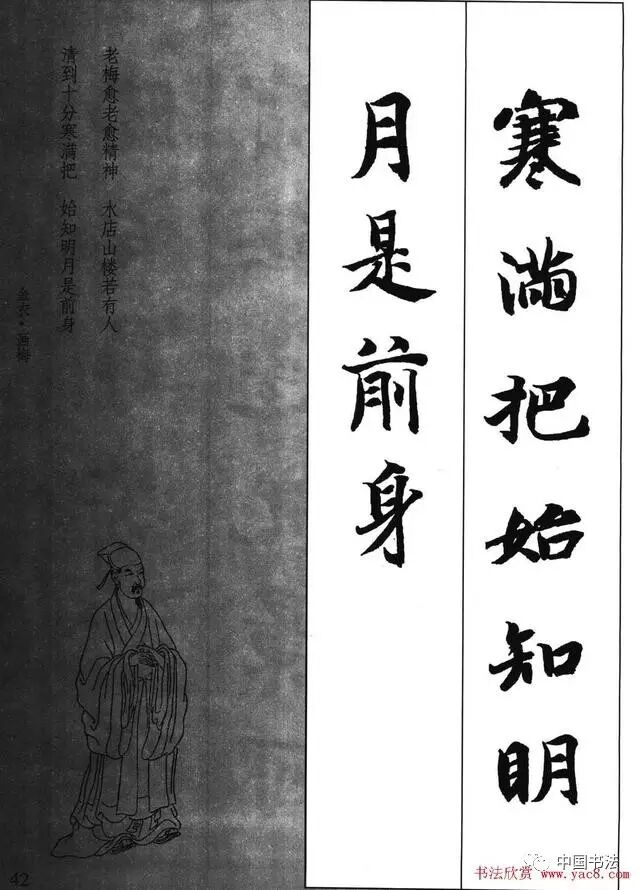 寒满把始知明
月是前身
老梅愈老愈精神 水店山楼若有人
清到十分寒满把 始知明月是前身
金农·画梅
42
中国书法
书法欣赏 www.yac8.com